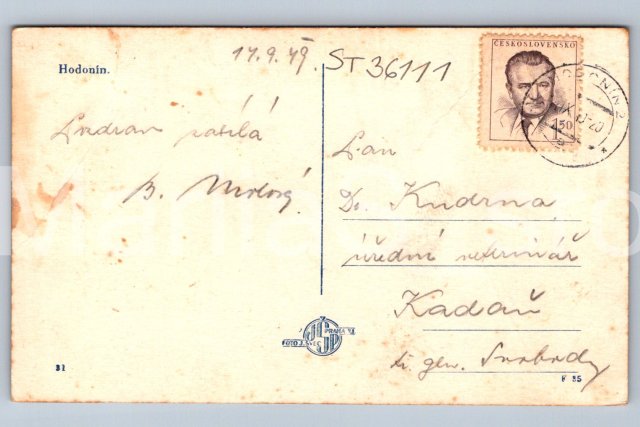 Hodonín.
17.9.49.
ST 36111
ČESKOSLOVENSKO
1.50
HODONÍN 2
Pozdrav posílá
B.
Pan
Dr. Kudrna
úřední veterinář
Kadaň
tř. gen. Svobody
FOTO J. PRAHA
31
F 35